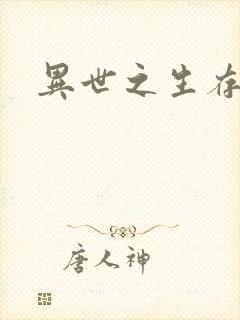 異世之生存
唐人神